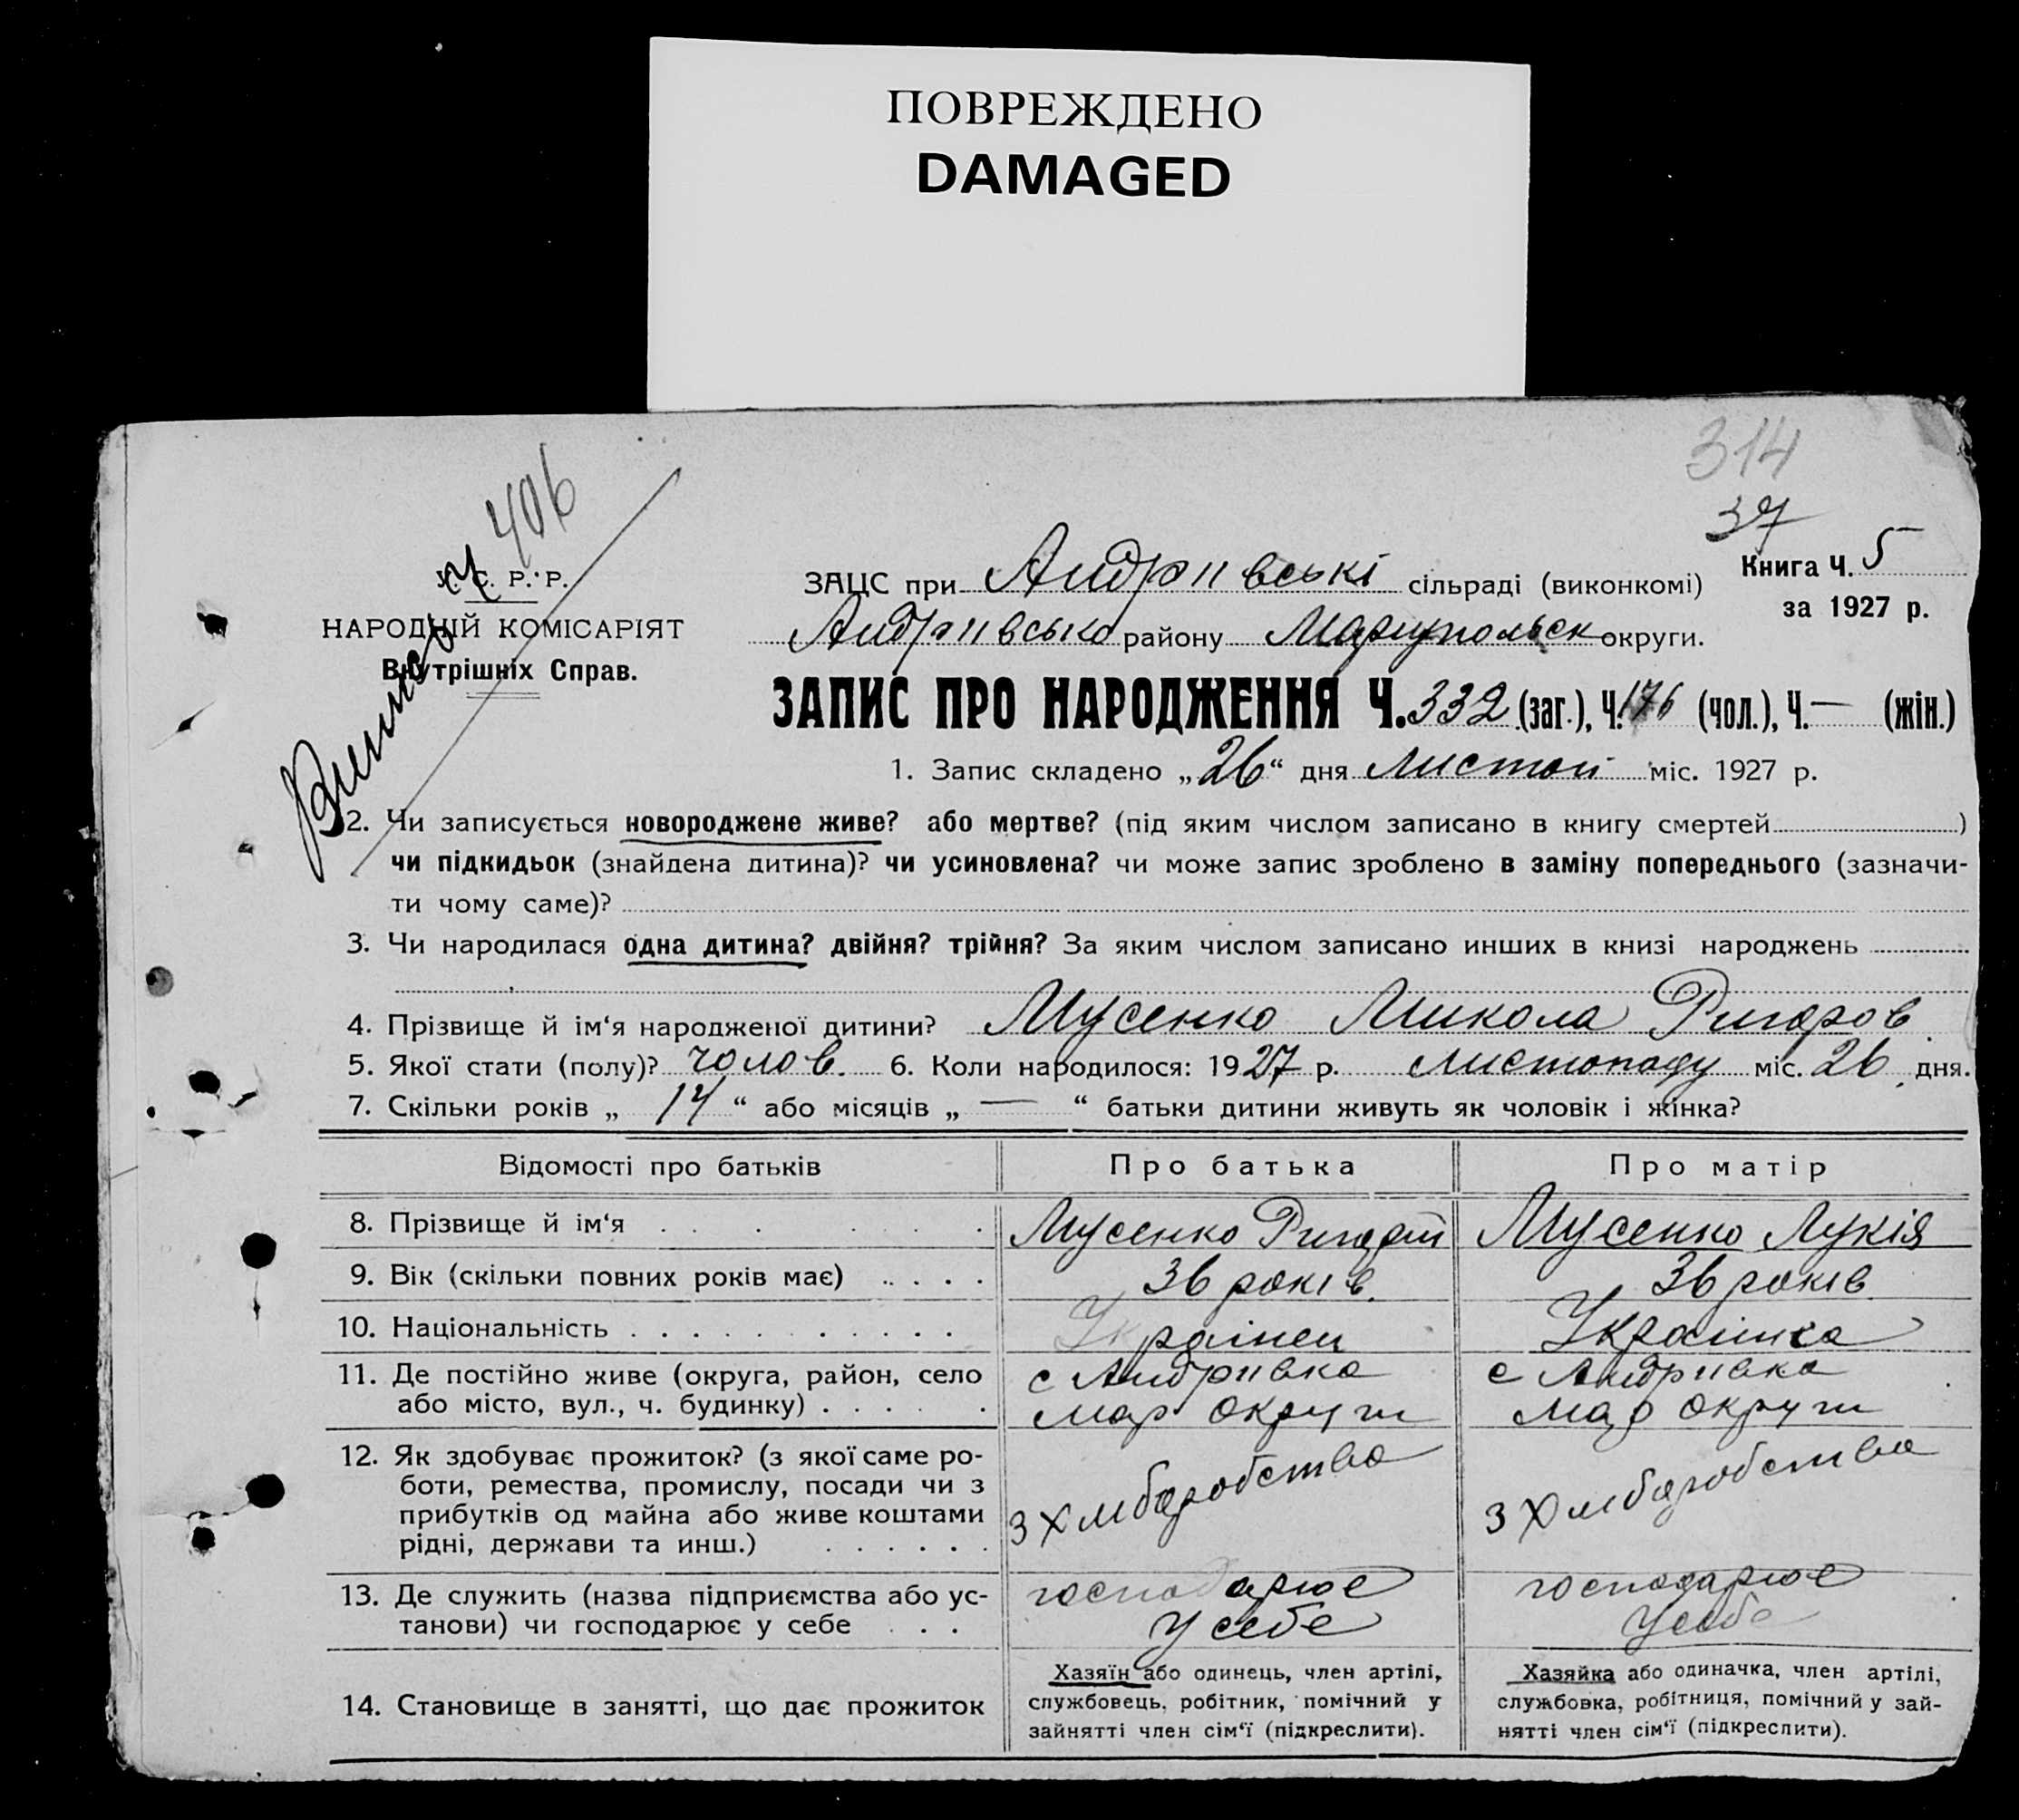 ПОВРЕЖДЕНО
DAMAGED
314
37
406
Книга Ч. 5
за 1927 р.
У. С. Р. Р.
НАРОДНІЙ КОМІСАРІЯТ
Внутрішніх Справ.
ЗАЦС при Андріівські сільраді (виконкомі)
Андріівсько району Мариупольск округи.
ЗАПИС ПРО НАРОДЖЕННЯ Ч. 332 (заг.), Ч. 176 (чол.), Ч. — (жін.)
1. Запис складено „26“ дня листоп міс. 1927 р.
2. Чи записується новороджене живе? або мертве? (під яким числом записано в книгу смертей)
чи підкидьок (знайдена дитина)? чи усиновлена? чи може запис зроблено в заміну попереднього (зазначи-
ти чому саме)?
3. Чи народилася одна дитина? двійня? трійня? За яким числом записано инших в книзі народжень
4. Прізвище й ім‘я народженої дитини? Мусенко Микола
5. Якої стати (полу)? чолов. 6. Коли народилося: 1927 р. листопаду міс. 26 дня.
7. Скільки років „ 14 “ або місяців „ — “ батьки дитини живуть як чоловік і жінка?
Відомості про батьків Про батька Про матір
8. Прізвище й ім‘я Мусенко Мусенко Лукія
9. Вік (скільки повних років має) 36 років. 36 років
10. Національність Украінец Украінка
11. Де постійно живе (округа, район, село с Андріівка с Андріівка
або місто, вул., ч. будинку) Мар округи Мар округи
12. Як здобуває прожиток? (з якої саме ро-
боти, ремества, промислу, посади чи з
прибутків од майна або живе коштами
рідні, держави та инш.) з хліборобства з хліборобства
13. Де служить (назва підприємства або ус- господарює господарює
танови) чи господарює у себе у себе у себе
14. Становище в занятті, що дає прожиток
Хазяїн або одинець, член артілі,
службовець, робітник, помічний у
зайнятті член сім‘ї (підкреслити).
Хазяйка або одиначка, член артілі,
службовка, робітниця, помічний у зай-
нятті член сім‘ї (підкреслити).